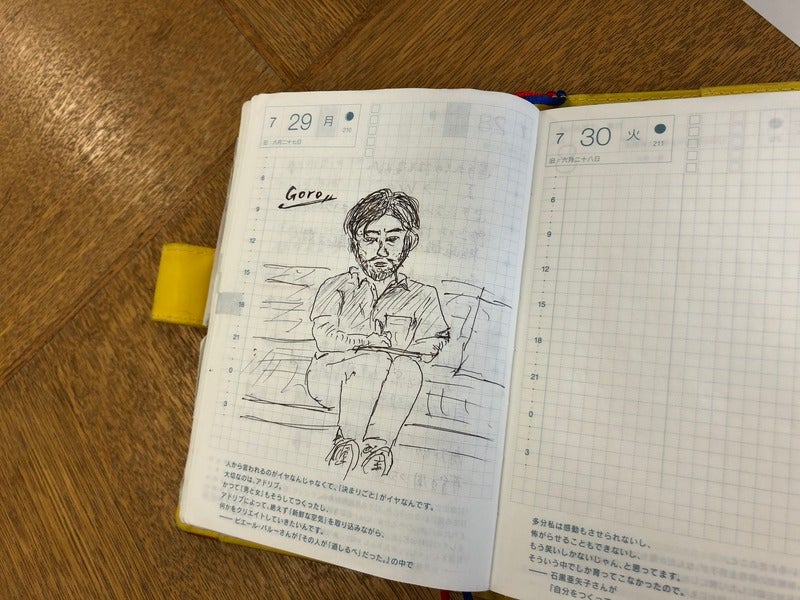 7 29 月
210
旧・六月二十七日
6
9
Goro
12
15
18
21
0
3
人から言われるのがイヤなんじゃなくて、「決まりごと」がイヤなんです。
大切なのは、アドリブ。
かつて「男と女」もそうしてつくったし、
アドリブによって、絶えず「新鮮な空気」を取り込みながら、
何かをクリエイトしていきたいんです。
——ピエール・バルーさんが『その人が「道しるべ」だった。』の中で
7 30 火
211
旧・六月二十八日
6
9
12
15
18
21
0
3
多分私は感動もさせられないし、
怖がらせることもできないし、
もう笑いしかないじゃん、と思ってます。
そういう中でしか育ってこなかったので。
——石黒亜矢子さんが
『自分をつくっ